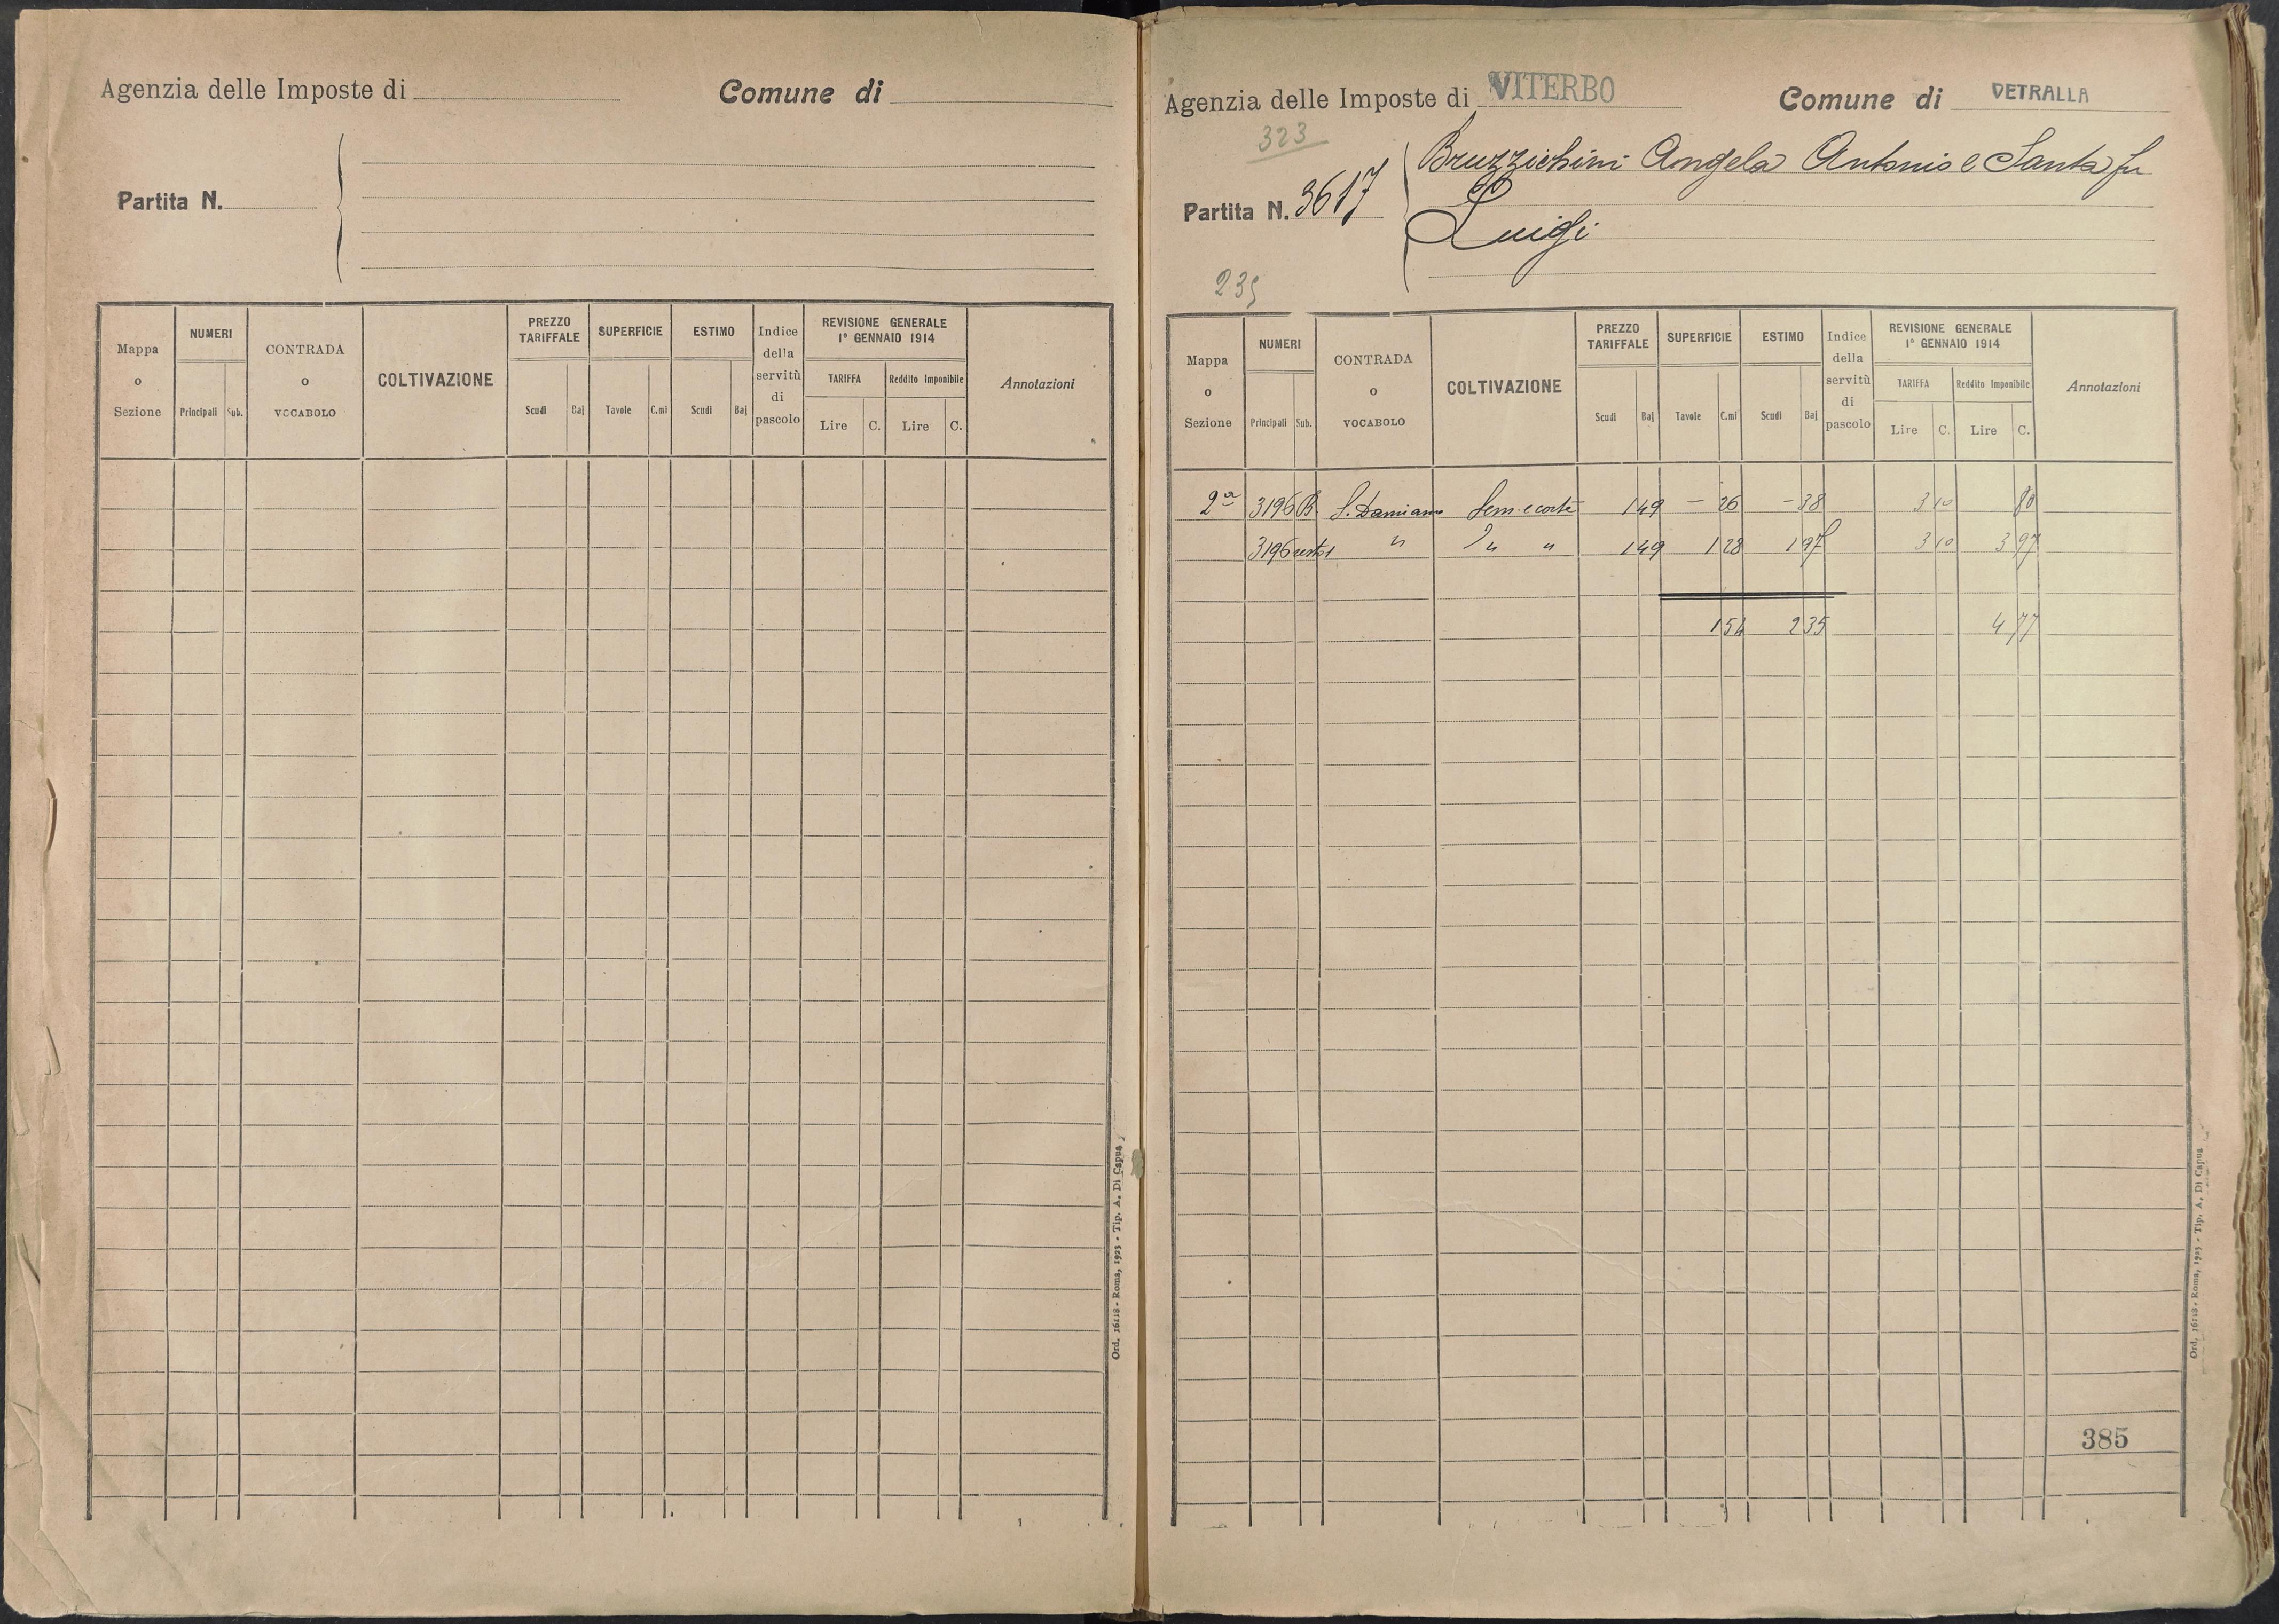 Agenzia delle Imposte di Comune di
Partita N.
Mappa o Sezione
NUMERI
Principali Sub.
CONTRADA o VOCABOLO
COLTIVAZIONE
PREZZO TARIFFALE
Scudi Baj
SUPERFICIE
Tavole C.mi
ESTIMO
Scudi Baj
Indice della servitù di pascolo
REVISIONE GENERALE
1° GENNAIO 1914
TARIFFA Reddito Imponibile
Lire C. Lire C.
Annotazioni
Ord. 16118 - Roma, 1923 - Tip. A. Di Capua
Agenzia delle Imposte di VITERBO Comune di VETRALLA
323
Partita N. 3617
Bruzzichini Angela Antonio e Santa fu
Luigi
235
Mappa o Sezione
NUMERI
Principali Sub.
CONTRADA o VOCABOLO
COLTIVAZIONE
PREZZO TARIFFALE
Scudi Baj
SUPERFICIE
Tavole C.mi
ESTIMO
Scudi Baj
Indice della servitù di pascolo
REVISIONE GENERALE
1° GENNAIO 1914
TARIFFA Reddito Imponibile
Lire C. Lire C.
Annotazioni
2ª 3196 B. S. Damiano Sem. e corte 1 49 – 26 – 38 3 10 80
3196 resto " " " 1 49 1 28 1 97 3 10 3 97
1 54 2 35 4 77
385
Ord. 16118 - Roma, 1923 - Tip. A. Di Capua